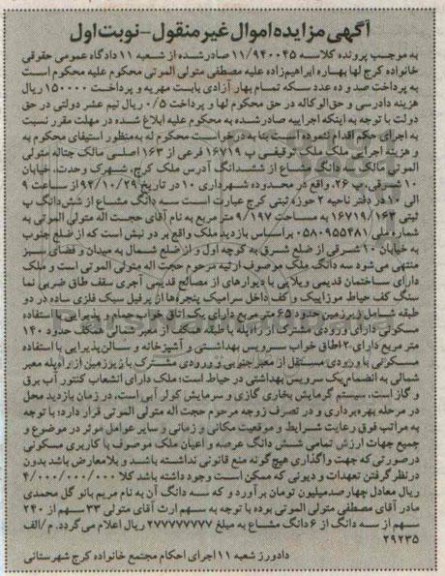 آگهی مزایده اموال غیر منقول - نوبت اول
به موجب پرونده کلاسه ۱۱/۹۴۰۰۴۵ صادر شده از شعبه ۱۱ دادگاه عمومی حقوقی
خانواده کرج لها بهاره ابراهیم‌زاده علیه مصطفی متولی الموتی محکوم علیه محکوم است
به پرداخت صد و ده عدد سکه تمام بهار آزادی بابت مهریه و پرداخت ۱۵۰۰۰۰ ریال
هزینه دادرسی و حق الوکاله در حق محکوم لها و پرداخت ۰/۵ ریال نیم عشر دولتی در حق
دولت با توجه به اینکه اجراییه صادر شده به محکوم علیه ابلاغ شده در مهلت مقرر نسبت
به اجرای حکم اقدام ننموده است بنا به درخواست محکوم له به‌منظور استیفای محکوم به
و هزینه اجرایی ملک ملک توقیفی پ ۱۶۷۱۹ فرعی از ۱۶۳ اصلی مالک جناله متولی
الموتی مالک سه دانگ مشاع از ششدانگ آدرس ملک کرج، شهرک وحدت، خیابان
۱۰ شرقی، پ ۲۶، واقع در محدوده شهرداری ۱۰ در تاریخ ۹۴/۱۰/۲۹ از ساعت ۹
الی ۱۰ در دفتر ناحیه ۲ حوزه ثبتی کرج عبارت است سه دانگ مشاع از شش‌دانگ پ
ثبتی ۱۶۷۱۹/۱۶۳ به مساحت ۹/۱۹۷ متر مربع به نام آقای حجت اله متولی الموتی به
شماره ملی ۰۵۸۰۹۵۵۴۸۱ براساس بازدید ملک واقع بر دو نبش است که از ضلع جنوب
به خیابان ۱۰ شرقی از ضلع شرق به کوچه اول و از ضلع شمال به میدان و فضای سبز
منتهی می‌شود سه دانگ ملک موصوف ارثیه مرحوم حجت اله متولی الموتی است و ملک
دارای ساختمان قدیمی ویلایی با دیوارهای از مصالح قدیمی آجری سقف طاق ضربی نما
سنگ کف حیاط موزاییک و کف داخل سرامیک پنجره‌ها از پرفیل سبک فلزی ساده در دو
طبقه شامل زیرزمین حدود ۶۵ متر مربع دارای یک اتاق خواب حمام و پذیرایی با استفاده
مسکونی دارای ورودی مشترک از راه‌پله با طبقه همکف از معبر شمالی همکف حدود ۱۴۰
متر مربع دارای ۲ اطاق خواب سرویس بهداشتی و آشپزخانه و سالن پذیرایی با استفاده
مسکونی با ورودی مستقل از معبر جنوبی و ورودی مشترک با زیرزمین از راه‌پله معبر
شمالی به انضمام یک سرویس بهداشتی در حیاط است؛ ملک دارای انشعاب کنتور آب برق
و گاز است، سیستم گرمایش بخاری گازی و سرمایش کولر آبی است، در زمان بازدید محل
در مرحله بهره‌برداری و در تصرف زوجه مرحوم حجت اله متولی الموتی قرار دارد؛ با توجه
به مراتب فوق رعایت شرایط و موقعیت مکانی و زمانی و سایر عوامل موثر در موضوع و
جمیع جهات ارزش تمامی شش دانگ عرصه و اعیان ملک موصوف با کاربری مسکونی
درصورتی که جهت واگذاری هیچ گونه منع قانونی نداشته باشد و بلامعارض باشد بدون
در نظر گرفتن تعهدات و دیونی که ممکن است وجود داشته باشد کلا ۴/۰۰۰/۰۰۰/۰۰۰
ریال معادل چهارصد میلیون تومان برآورد و که سه دانگ آن به نام مریم بانو گل محمدی
مادر آقای مصطفی متولی الموتی بوده با توجه به سهم ارث آقای متولی ۳۳ سهم از ۲۴۰
سهم از سه دانگ از ۶ دانگ مشاع به مبلغ ۲۷۷۷۷۷۷۷۷ ریال اعلام می‌گردد. م/الف
۲۹۲۳۵
دادورز شعبه ۱۱ اجرای احکام مجتمع خانواده کرج شهرستانی